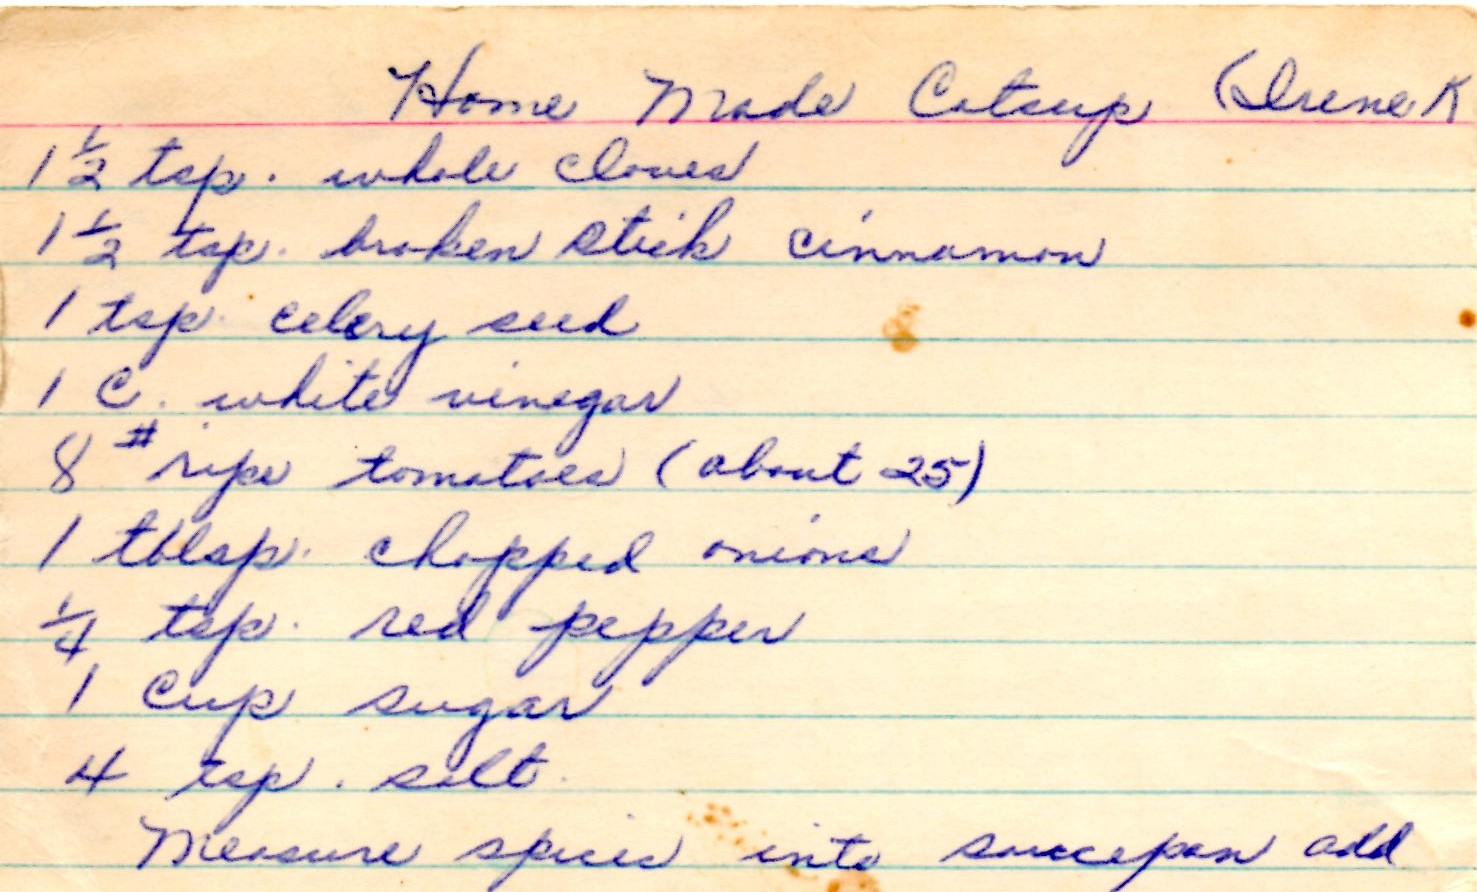 Home Made Catsup (Irene K
1 1/2 tsp. whole cloves
1 1/2 tsp. broken stick cinnamon
1 tsp. celery seed
1 C. white vinegar
8 # ripe tomatoes (about 25)
1 tblsp. chopped onions
1/4 tsp. red pepper
1 cup sugar
4 tsp. salt.
Measure spices into saucepan add